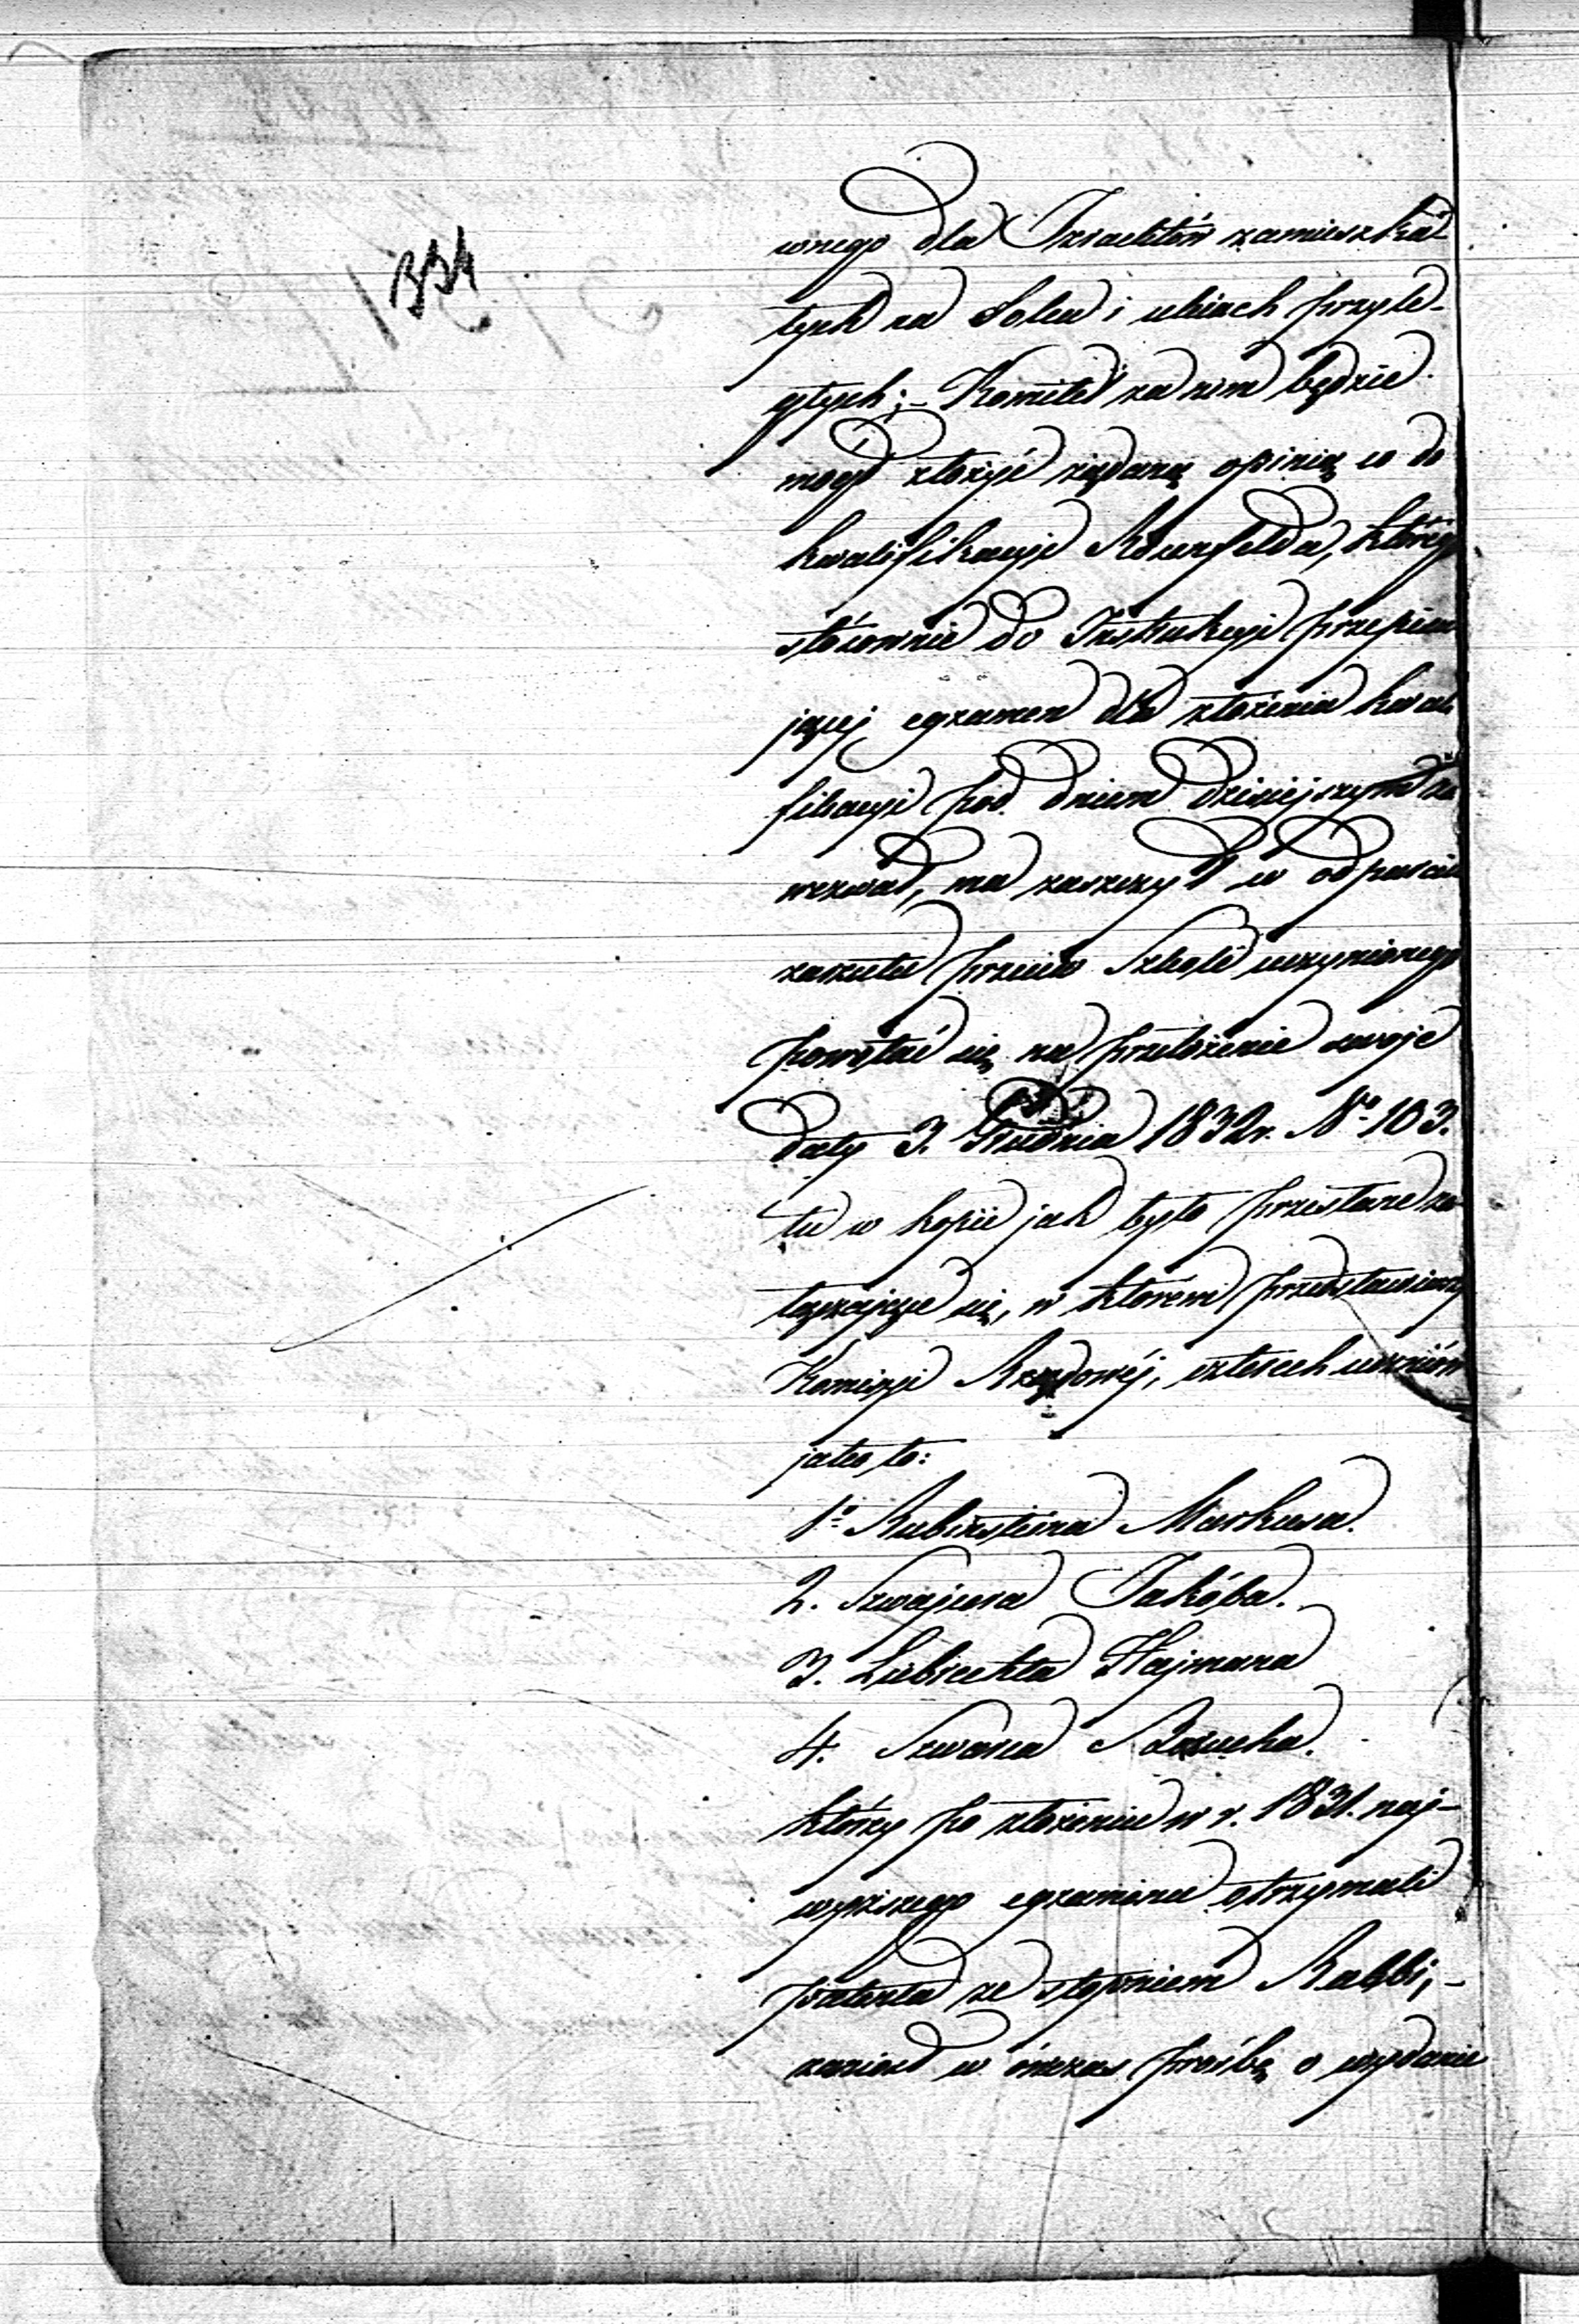 334
wnego dla Izraelitów zamieszka-
łych na Solcu i ulicach przyle-
głych; – Komitet zanim będzie
mógł złożyć żądaną opinią co do
kwalifikacyi Rosenfelda, którego
stósownie do Instrukcyi przepisu
jącej egzamen dla złożenia kwali
fikacyi pod dniem dzisiejszym za
wezwał, ma zaszczyt w odparciu
zarzutu przeciw Szkole uczynionego
powołać się na przełożenie swoje
daty 3. Grudnia 1832r. No 103.
tu w kopii jak było przesłane za
łączające się, w którém przedstawiony
Komisyi Rządowéj, czterech uczniów
jako to:
1o Rubinsteina Markusa.
2. Szwajcera Jakóba.
3. Liebrechta Hajmana
4. Szwarca Barucha.
którzy po złożeniu w r. 1831. naj-
wyższego egzaminu otrzymali
patenta ze stopniem Rabbi, –
zaniósł w ówczas prośbę o wydanie